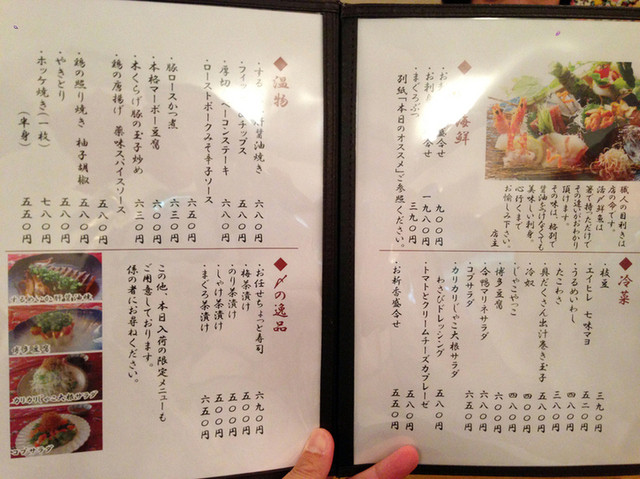 職人の目利きは
店の命です。
活〆鮮魚は
箸で持っただけで
その違いがおわかり
頂けます。
その味は、格別で
醤油をつけなくても
美味しい刺身。
心行くまで
お愉しみ下さい。
店主
海鮮
盛合せ 九〇〇円
盛合せ 一、九八〇円
・まぐろぶつ 三九〇円
別紙「本日のオススメ」ご参照ください。
◆冷菜
枝豆 三九〇円
・エイヒレ 七味マヨ 五二〇円
・うるめいわし 四八〇円
・たこわさ 三八〇円
・具だくさん出汁巻き玉子 五八〇円
・冷奴 四〇〇円
・じゃこやっこ 四八〇円
・博多豆腐 四〇〇円
・合鴨マリネサラダ 六五〇円
・コブサラダ 六〇〇円
・カリカリじゃこ大根サラダ
わさびドレッシング 五八〇円
・トマトとクリームチーズカプレーゼ 五八〇円
・お新香盛合せ 五五〇円
◆温物
醤油焼き 六八〇円
チップス 五八〇円
・厚切りベーコンステーキ 六八〇円
・ローストポークみそ辛子ソース 六八〇円
・豚ロースかつ煮 六五〇円
・本格マーボー豆腐 六三〇円
・木くらげ豚の玉子炒め 六〇〇円
・鶏の唐揚げ 薬味スパイスソース 六三〇円
・鶏の照り焼き 柚子胡椒 五八〇円
・やきとり 五五〇円
・ホッケ焼き(一枚) 七八〇円
(半身) 五五〇円
◆〆の逸品
・お任せちょっと寿司 六九〇円
・梅茶漬け 五〇〇円
・のり茶漬け 五〇〇円
・しゃけ茶漬け 五五〇円
・まぐろ茶漬け 六五〇円
この他、本日入荷の限定メニューも
ご用意しております。
係の者にお尋ねください。
博多豆腐
カリカリじゃこ大根サラダ
コブサラダ